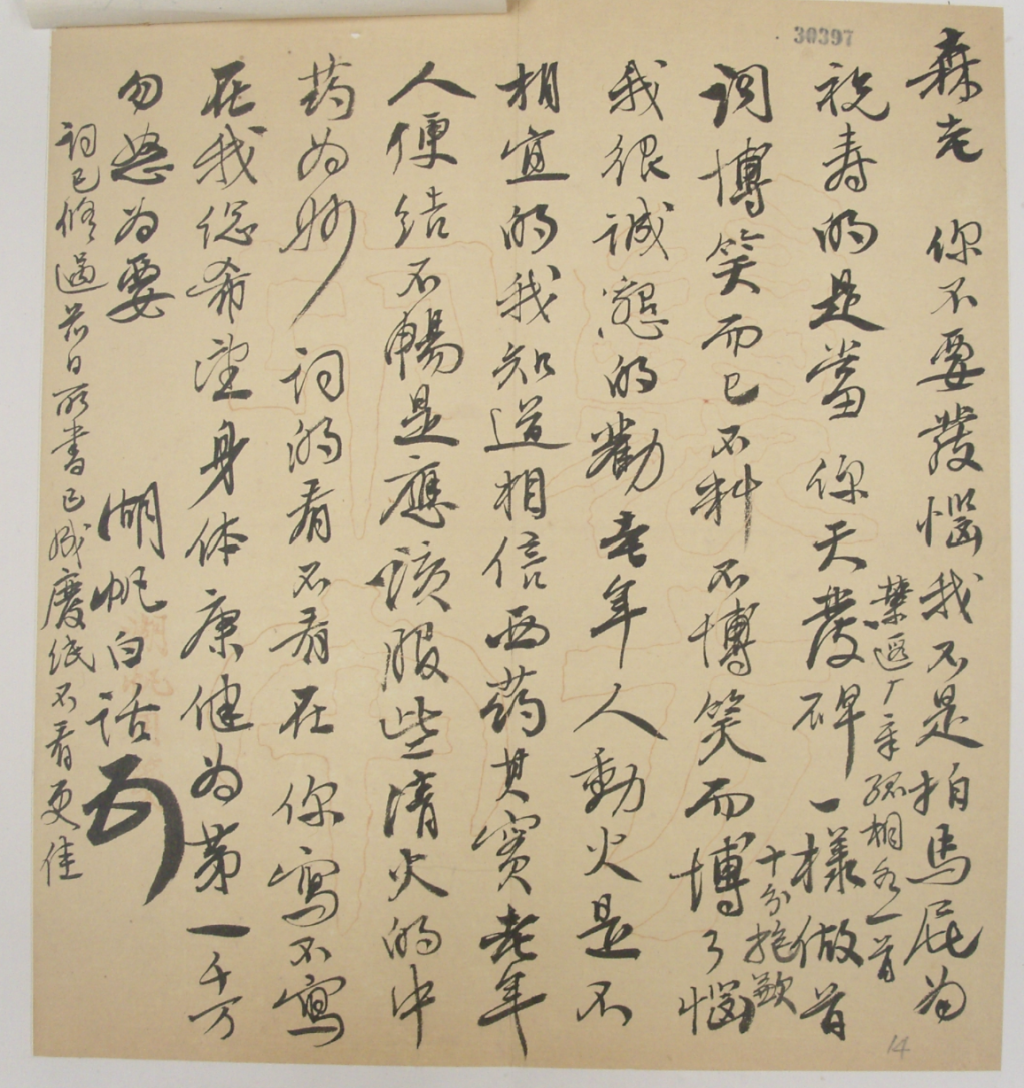 30397
森老 你不要發惱我不是拍馬屁为
祝寿的是當你天發碑一樣做首
厂辛孤桐各一首
詞博笑而已不料不博笑而博了惱
十分抱歉
我很誠懇的勸老年人動火是不
相宜的我知道相信西药其實老年
人便结不暢是應該服些清火的中
药为妙 词的看不看在你寫不寫
在我総希望身体康健为第一千万
勿怒为要 湖帆白话
词已修過前日所書已成廢纸不看更佳
14